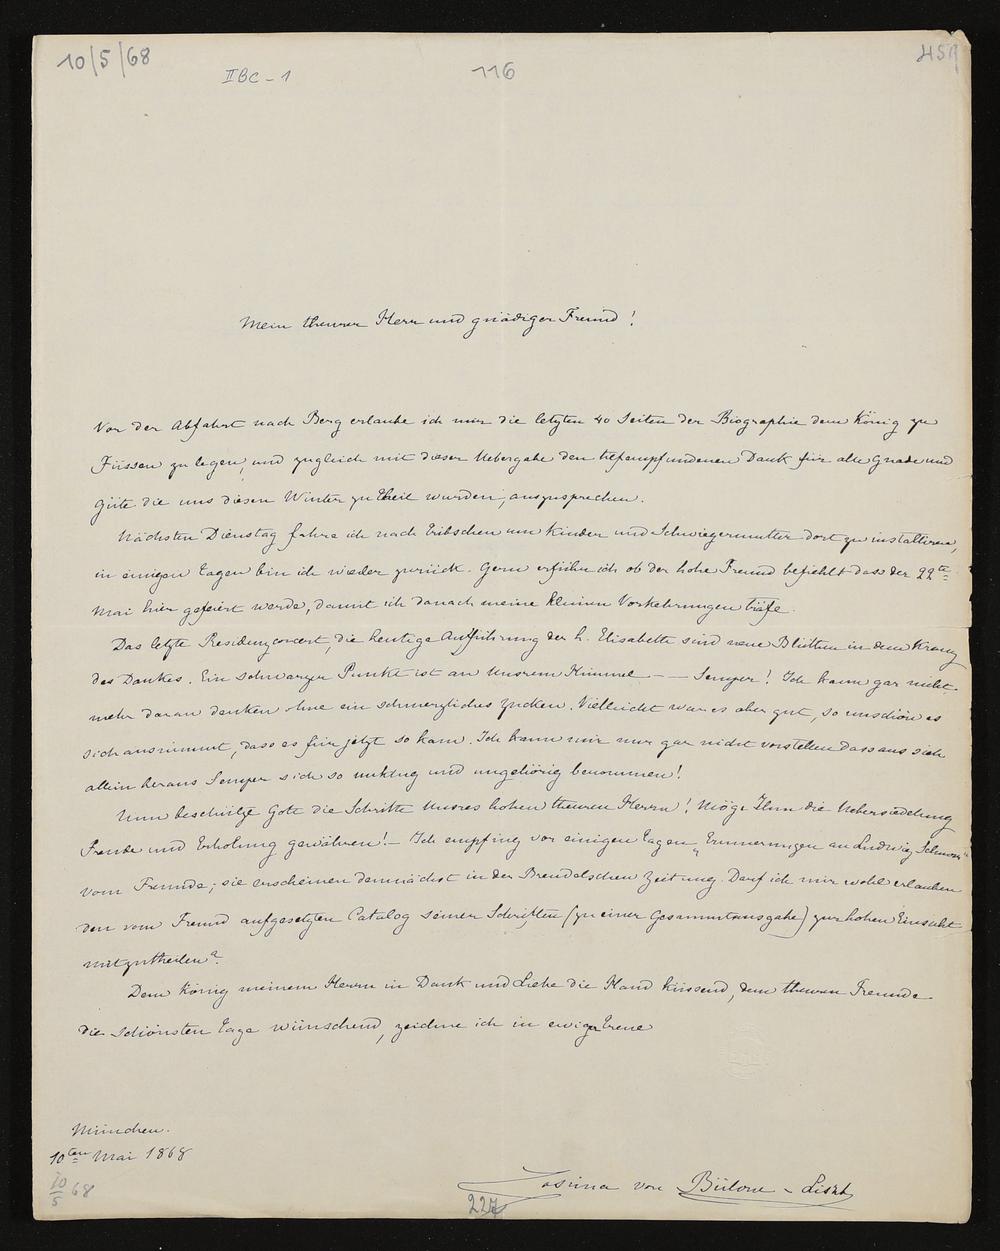 10/5/68
II BC - 1
116
Mein theurer Herr und gnädiger Freund!
Vor der Abfahrt nach Berg erlaube ich mir die letzten 40 Seiten der Biographie dem König zu
Füssen zu legen, und zugleich mit dieser Uebergabe den tiefempfundenen Dank für alle Gnade und
Güte die uns diesen Winter zu theil wurden, auszusprechen.
Nächsten Dienstag fahre ich nach Tribschen um Kinder und Schwiegermutter dort zu installiren,
in einigen Tagen bin ich wieder zurück. Gern erführe ich ob der hohe Freund befiehlt dass der 22te
Mai hier gefeiert werde, damit ich danach meine kleinen Vorkehrungen träfe.
Das letzte Residenzconcert, die heutige Aufführung der h. Elisabeth sind neue Blüthen in dem Kranz
des Dankes. Ein schwarzer Punkt ist an Unsrem Himmel — — Semper! Ich kann gar nicht
mehr daran denken ohne ein schmerzliches Zucken. Vielleicht war es aber gut, so unschön es
sich ausnimmt, dass es für jetzt so kam. Ich kann mir nur gar nicht vorstellen dass aus sich
allein heraus Semper sich so unklug und ungehörig benommen!
Nun beschütze Gott die Schritte Unsres hohen theuren Herrn! Möge Ihm die Uebersiedelung
Freude und Erholung gewähren! — Ich empfing vor einigen Tagen „Erinnerungen an Ludwig Schnorr“
vom Freunde; sie erscheinen demnächst in der Brendelschen Zeitung. Darf ich mir wohl erlauben
den vom Freund aufgesetzten Catalog seiner Schriften (zu einer Gesammtausgabe) zur hohen Einsicht
mitzutheilen?
Dem König meinem Herrn in Dank und Liebe die Hand küssend, dem theuren Freunde
die schönsten Tage wünschend, zeichne ich in ewiger Treue
München.
10ten Mai 1868
10/5 68
Cosima von Bülow - Liszt
227